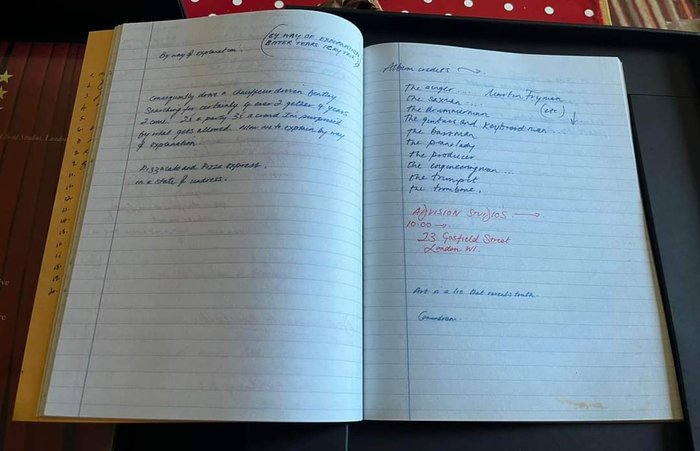 By way of explanation.
(BY WAY OF EXPLANATION
BITTER TEARS
Consequently down a chauffeur driven Bentley
Searching for certainty 4 ever 2 gether 4 years
2 come. Is a party is a word I'm surprised
by what gets allowed. Allow me to explain by way
of explanation.
Pizza and Pizza express.
in a state of undress.
Album credits →
The singer ... Martin Fryman
The saxman ... (etc)
The drummerman ↓
The guitars and Keyboard man ...
the bassman
the piano lady
the producer
the engineering man ...
the trumpet
the trombone.
ADVISION STUDIOS →
10:00 →
23 Gosfield Street
London W1.
Art is a lie that reveals truth.
Conundrum.